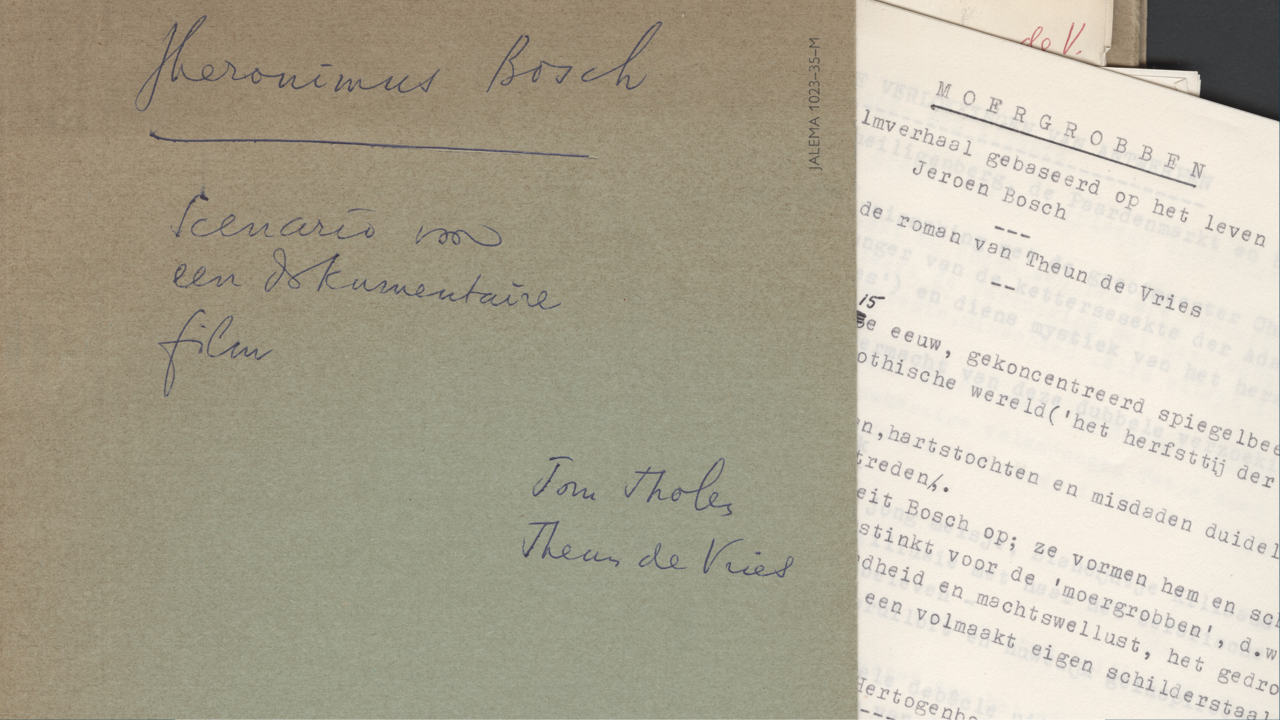 Jheronimus Bosch
Scenario voor
een dokumentaire
film
Tom Tholen
Theun de Vries
JALEMA 1023-35-M
de V.
MOERGROBBEN
lmverhaal gebaseerd op het leven
Jeroen Bosch
---
de roman van Theun de Vries
--
15
e eeuw, gekoncentreerd spiegelbee
othische wereld('het herfsttij der
en,hartstochten en misdaden duidel
treden.
eit Bosch op; ze vormen hem en sch
stinkt voor de 'moergrobben', d.w
dheid en machtswellust, het gedro
een volmaakt eigen schilderstaal
Hertogenbo
----